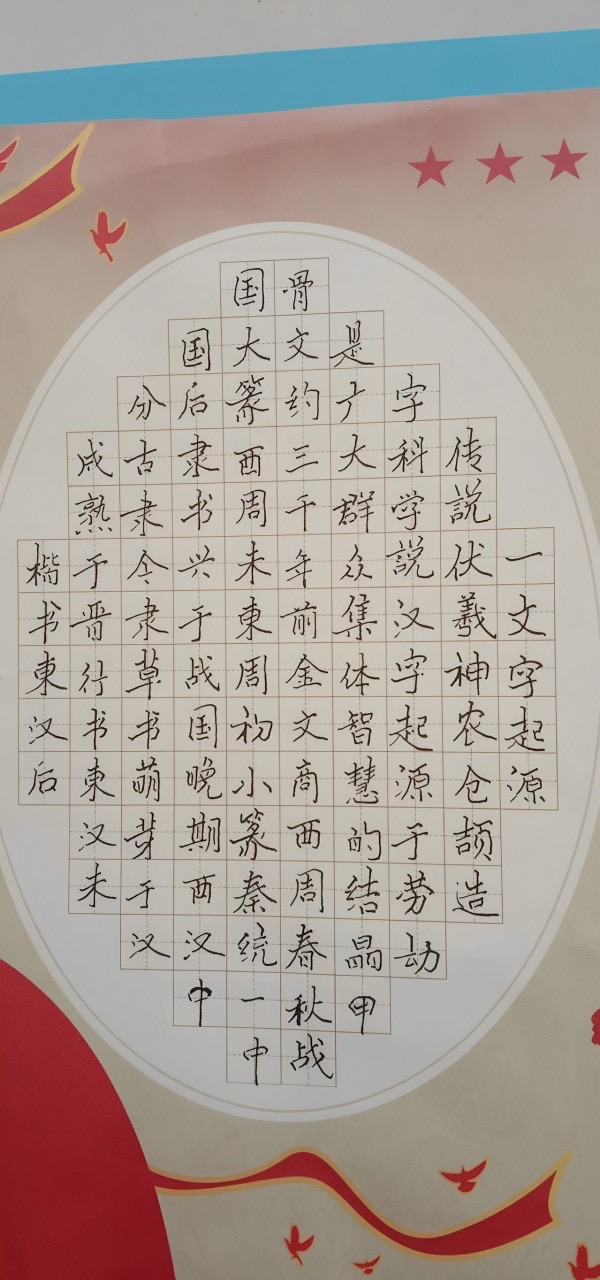 一文字起源
传説伏羲神农仓颉造
字科学説汉字起源于劳动
是广大群众集体智慧的结晶甲
骨文约三千年前金文商西周春秋战
国大篆西周末東周初小篆秦统一中
国后隶书兴于战国晚期西汉中
分古隶今隶草书萌芽于汉
成熟于晋行书東汉末
楷书東汉后